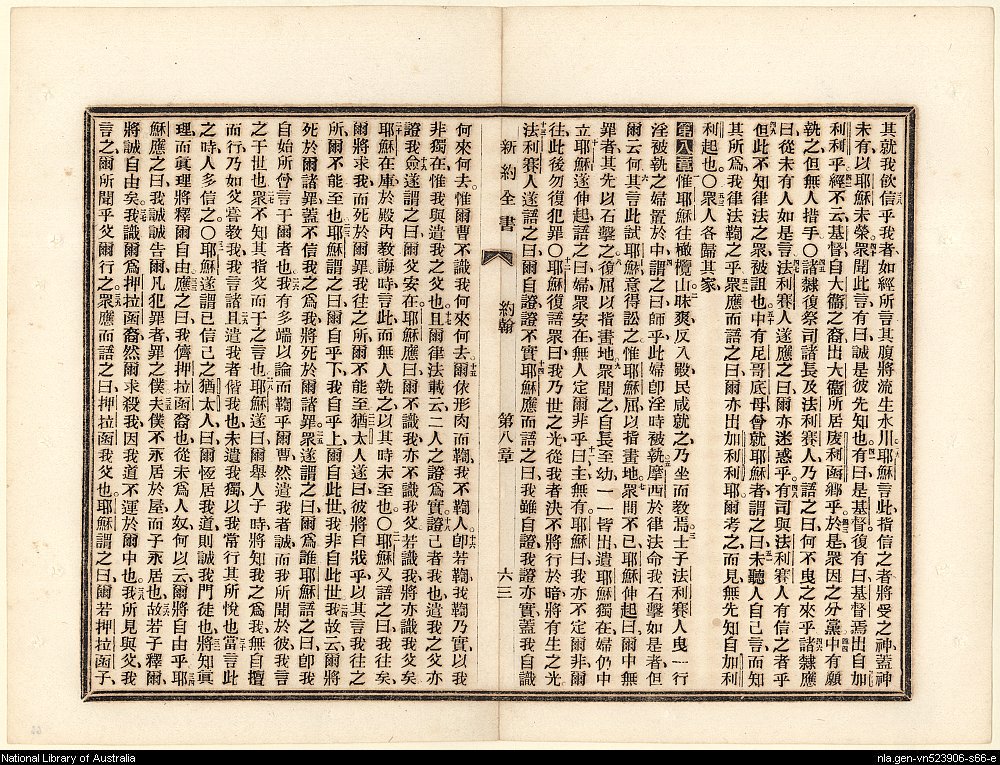 其就我飲信乎我者如經所言其腹將流生水川耶穌言此指信之者將受之神蓋神
未有以耶穌未榮衆聞此言有曰誠是彼先知也有曰是基督復有曰基督焉出自加
利利乎經不云基督自大衞之裔出大衞所居廋利函鄉乎於是衆因之分黨中有願
執之但無人措手〇諸隸復祭司諸長及法利賽人乃語之曰何不曳之來乎諸隸應
曰從未有人如是言法利賽人遂應之曰爾亦迷惑乎有司與法利賽人有信之者乎
但此不知律法之衆被詛也中有尼哥底母曾就耶穌者謂之曰未聽人自己言而知
其所爲我律法鞫之乎衆應而語之曰爾亦出加利利耶爾考之而見無先知自加利
利起也〇衆人各歸其家
第八章惟耶穌往橄欖山昧爽反入殿民咸就之乃坐而教焉士子法利賽人曳一行
淫被執之婦置於中謂之曰師乎此婦卽淫時被執摩西於律法命我石擊如是者但
爾云何其言此試耶穌意得訟之惟耶穌屈以指畫地衆問不已耶穌伸起曰爾中無
罪者其先以石擊之復屈以指畫地衆聞之自長至幼一一皆出遺耶穌獨在婦仍中
立耶穌遂伸起語之曰婦衆安在無人定爾罪乎曰主無有耶穌曰我亦不定爾罪
往此後勿復犯罪〇耶穌復語衆曰我乃世之光從我者決不將行於暗將有生之光
法利賽人遂語之曰爾自證證不實耶穌應而語之曰我雖自證我證亦實蓋我自識
新約全書
約翰
第八章
六三
何來何去惟爾曹不識我何來何去爾依形肉而鞫我不鞫人卽若鞫我鞫乃實以我
非獨在惟我與遣我之父也且爾律法載云二人之證爲實證己者我也遣我之父亦
證我僉遂謂之曰爾父安在耶穌應曰爾不識我亦不識我父若識我將亦識我父矣
耶穌在庫於殿內教誨時言此而無人執之以其時未至也〇耶穌又語之曰我往矣
爾將求我而死於爾罪我往之所爾不能至猶太人遂曰彼將自戕乎以其言我往之
所爾不能至也耶穌謂之曰爾自乎下我自乎上爾自此世我非自此世我故云爾將
死於爾諸罪蓋不信我之爲我將死於爾諸罪衆遂謂之曰爾爲誰耶穌語之曰卽我
自始所曾言于爾者也我有多端以論而鞫乎爾曹然遣我者誠而我所聞於彼我言
之于世也衆不知其指父而于之言也耶穌遂曰爾舉人子時將知我之爲我無自擅
而行乃如父嘗教我我言諸且遣我者偕我也未遺我獨以我常行其所悅也當言此
之時人多信之〇耶穌遂謂已信己之猶太人曰爾恆居我道則誠我門徒也將知眞
理而眞理將釋爾自由應之曰我儕押拉函裔也從未爲人奴何以云爾將自由乎耶
穌應之曰我誠誠告爾凡犯罪者罪之僕夫僕不永居於屋而子永居也故若子釋爾
將誠自由矣我識爾爲押拉函裔然爾求殺我因我道不運於爾中也我所見與父我
言之爾所聞乎父爾行之衆應而語之曰押拉函我父也耶穌謂之曰爾若押拉函子
National Library of Australia
nla.gen-vn523906-s66-e